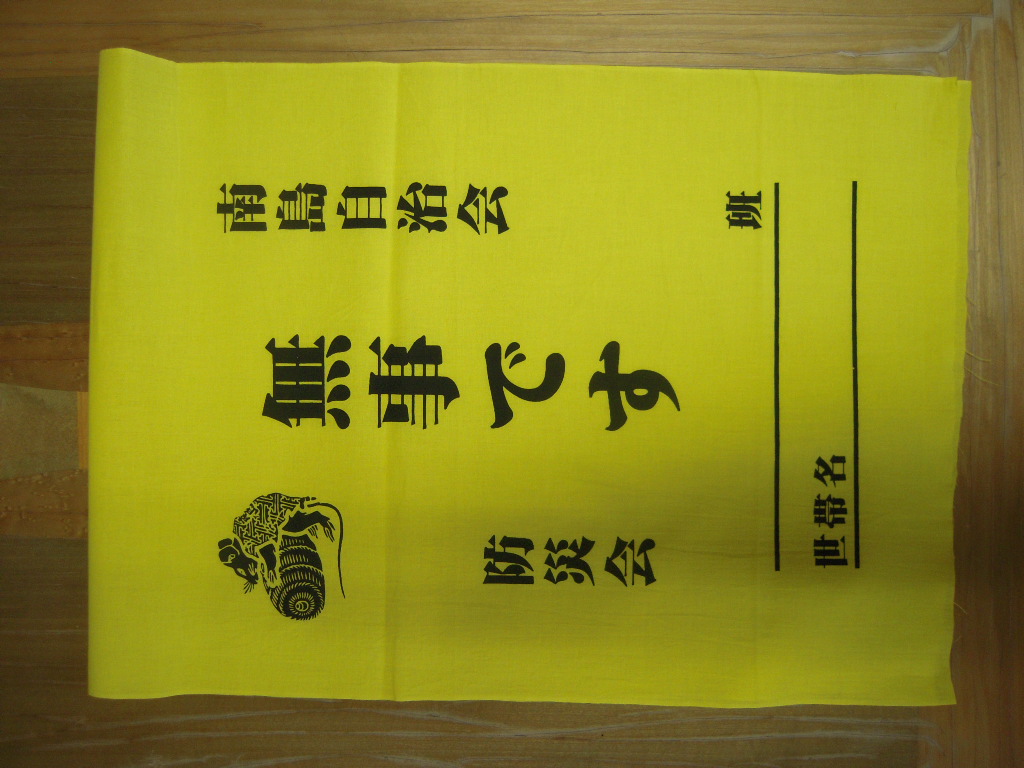 南島自治会
無事です
防災会
班
世帯名